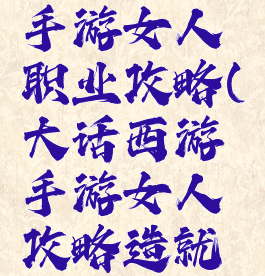 手游女人
职业攻略(
大话西游
手游女人
攻略造就